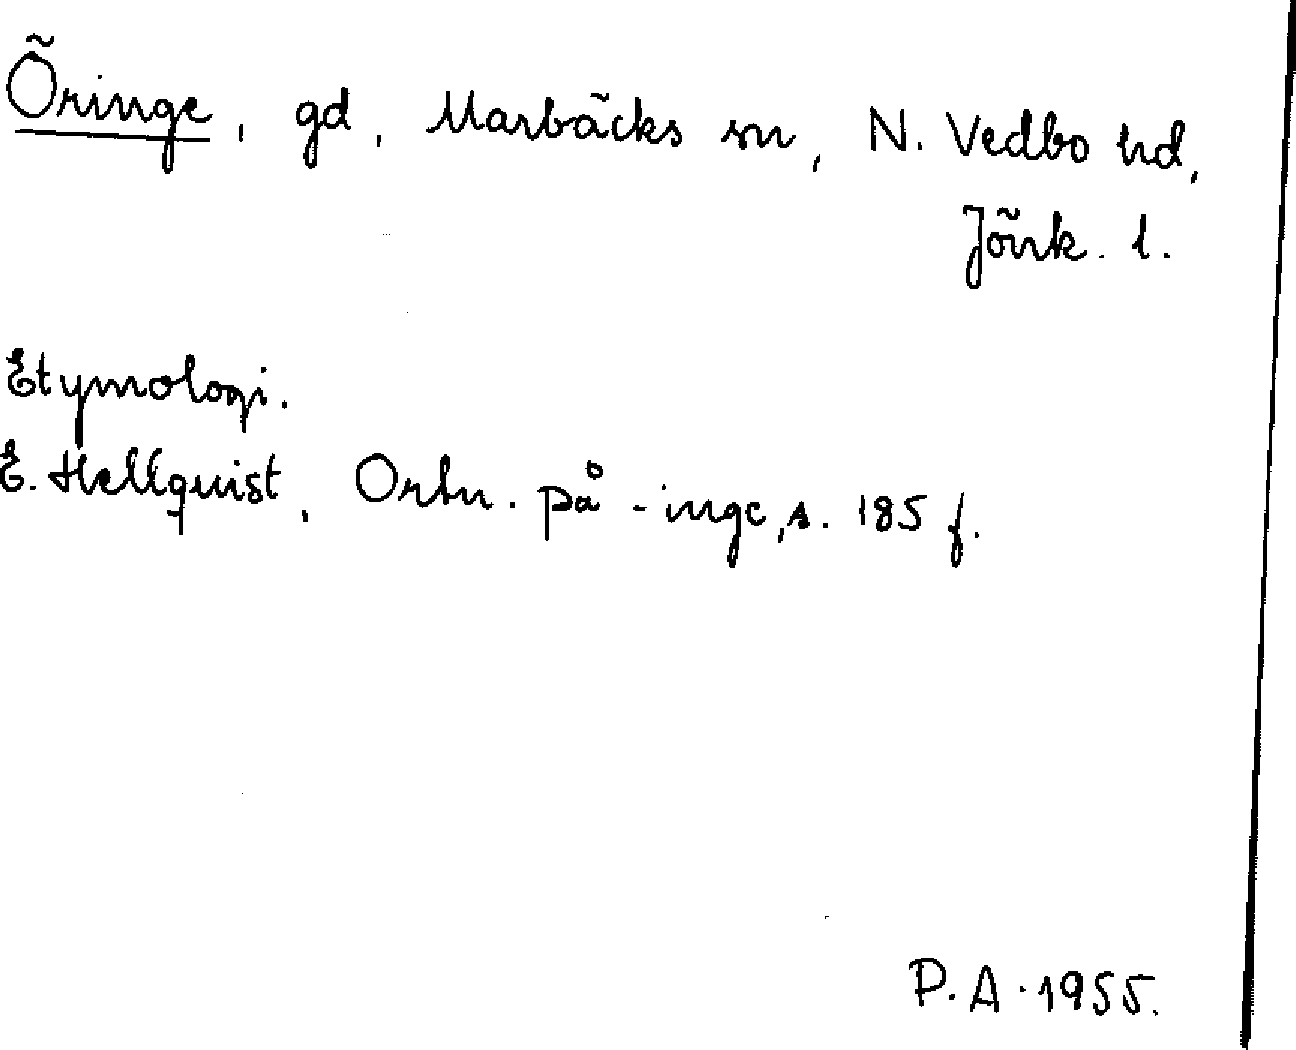 Öringe, gd, Marbäcks sn, N. Vedbo hd,
Jönk. l.
Etymologi.
E. Hellquist, Ortn. på -inge, s. 185 f.
P. A. 1955.